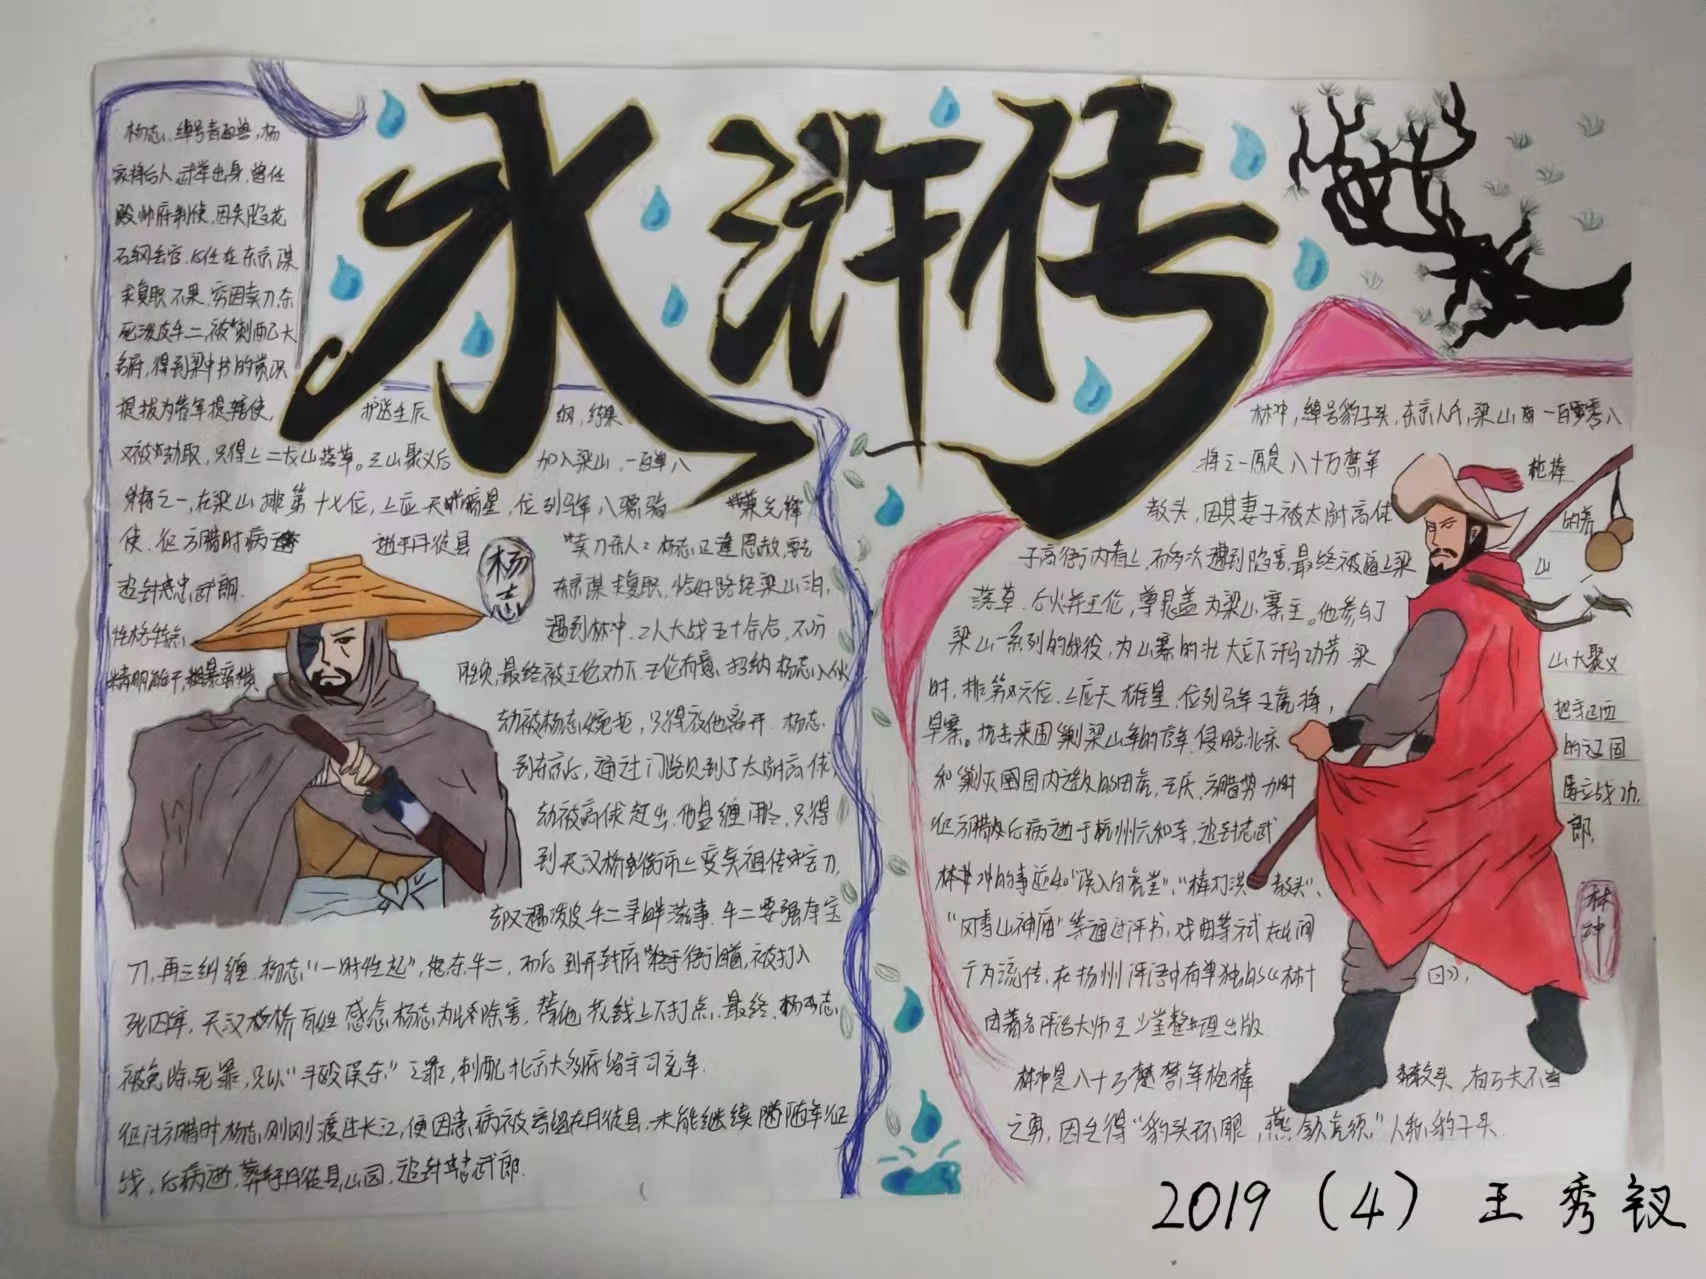 水浒传
杨志，绰号青面兽，杨
家将后人，武举出身，曾任
殿帅府制使，因失陷花
石纲丢官。后任在东京谋
求复职不果，穷困卖刀杀
死泼皮牛二，被刺配大
名府，得到梁中书的赏识
提拔为管军提辖使，护送生辰纲，结果
又被劫取，只得上二龙山落草。三山聚义后加入梁山，一百单八
将之一，在梁山排第十七位，上应天暗星，位列马军八骠骑兼先锋
使。征方腊时病逝于丹徒县
追封忠武郎
性格特点
精明能干，粗暴蛮横
杨志
卖刀杀人：杨志正逢恩赦，要去
东京谋求复职，恰好路经梁山泊，
遇到林冲，二人大战五十余合，不分
胜负，最终被王伦劝下，王伦有意招纳杨志入伙
却被杨志婉拒，只得放他离开。杨志
到东京后，通过门路见到了太尉高俅，
却被高俅赶出，他盘缠用尽，只得
到天汉桥街市上变卖祖传宝刀，
却又遇泼皮牛二寻衅滋事，牛二要强夺宝
刀，再三纠缠，杨志“一时性起”，怒杀牛二，而后到开封府衙门自首，被打入
死囚牢，天汉桥百姓感念杨志为民除害，替他敛钱上下打点，最终，杨志
被免除死罪，只以“斗殴误杀”之罪，刺配北京大名府留守司充军.
征讨方腊时，杨志刚刚渡过长江，便因患病被寄留在丹徒县，未能继续随军征
战，后病逝，葬于丹徒县山园，追封忠武郎.
林冲，绰号豹子头，东京人氏，梁山一百零八
将之一，原是八十万禁军枪棒
教头，因其妻子被太尉高俅的养
子高衙内看上，而多次遭到陷害，最终被逼上梁山
落草，后火并王伦，尊晁盖为梁山寨主。他参与了
梁山一系列的战役，为山寨的壮大立下汗马功劳，梁山大聚义
时，排第六位，上应天雄星，位列马军五虎将，把守正西
旱寨。抗击来围剿梁山军的官军，侵略北宋的辽国
和剿灭国内造反的田虎，王庆，方腊势力时屡立战功，
征方腊后病逝于杭州六和寺，追封忠武郎，
林冲的事迹如“误入白虎堂”、“棒打洪教头”、
“风雪山神庙”等通过评书，戏曲等方式在民间
广为流传，在扬州评话中有单独的《林十回》，
由著名评话大师王少堂整理出版
林冲是八十万禁军枪棒教头，有万夫不当
之勇，因生得“豹头环眼，燕颔虎须”人称豹子头
林冲
2019（4）王秀钗